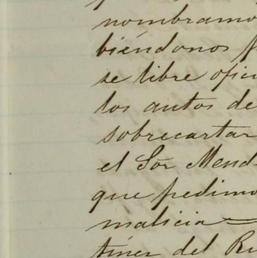 nombramo
biéndonos
se libre ofic
los autos de
sobrecartar
el Sor Mend
que pedimo
malicia
tiner del Ru